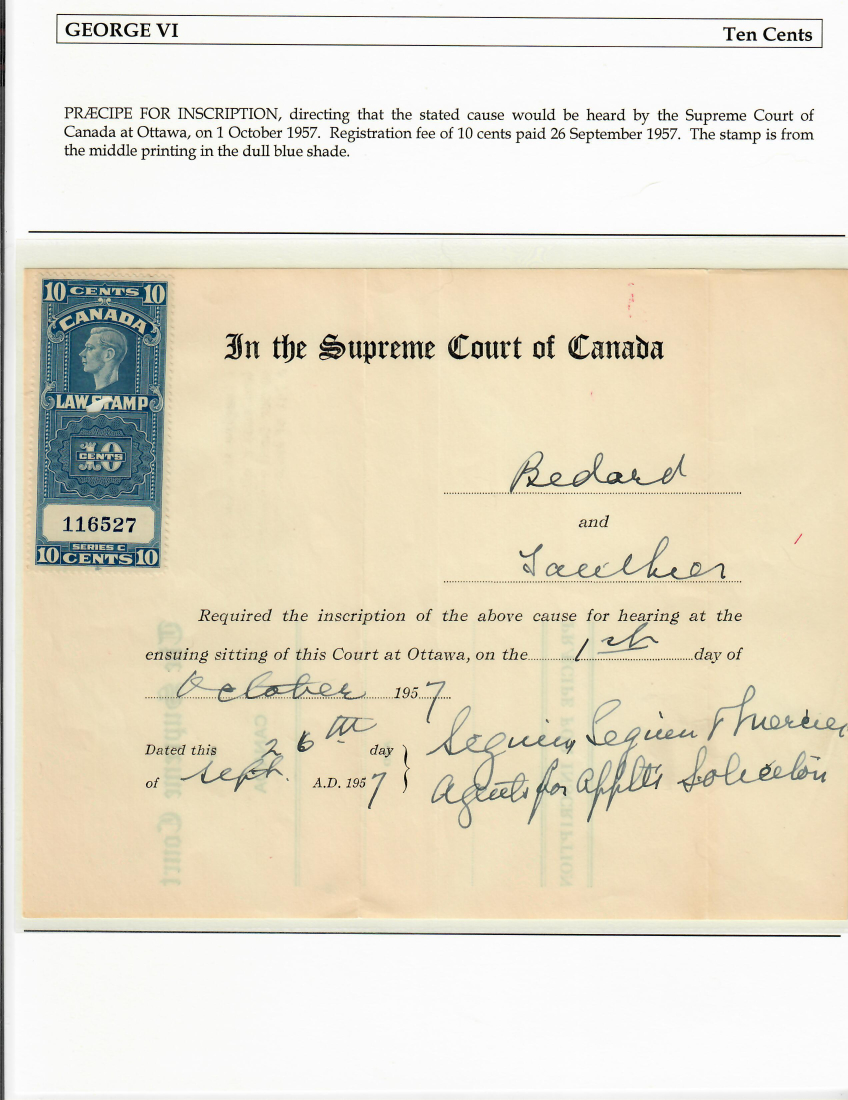 GEORGE VI
Ten Cents
PRÆCIPE FOR INSCRIPTION, directing that the stated cause would be heard by the Supreme Court of
Canada at Ottawa, on 1 October 1957. Registration fee of 10 cents paid 26 September 1957. The stamp is from
the middle printing in the dull blue shade.
10 CENTS 10
CANADA
LAW STAMP
10
CENTS
116527
SERIES C
10 CENTS 10
In the Supreme Court of Canada
Bedard
and
Required the inscription of the above cause for hearing at the
ensuing sitting of this Court at Ottawa, on the 1st day of
October 1957
Dated this 26th day
of Sept. A.D. 1957
Seguin, Seguin &
Agents for Applts Solicitors